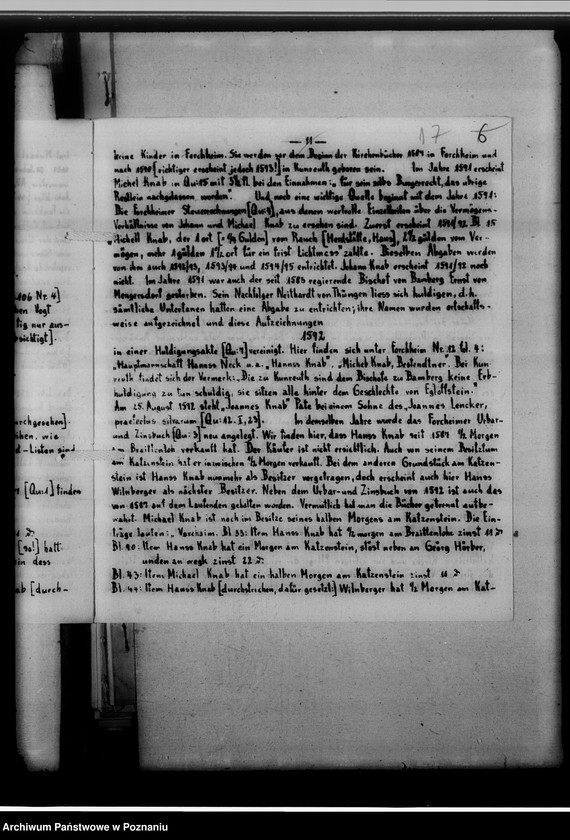 106 Nr. 4]
hen Vogt
tig nur aus-
sichtigt].
archgesehen].
hen. wie
d-Listen sind
[Qu:1] finden
11 ₰
[so!] hatt
in dass
ab [durch-
17 6
— 11 —
keine Kinder in Forchheim. Sie werden vor dem Beginn der Kirchenbücher 1589 in Forchheim und
nach 1590 [richtiger erscheint jedoch 1593!] in Kunreuth geboren sein. Im Jahre 1591 erscheint
Michel Knab in Qu:15 mit fl. bei den Einnahmen: „für sein selbs Burgerrecht, das uhrige
Restlein nachgelassen worden". Und noch eine wichtige Quelle beginnt mit dem Jahre 1591:
Die Forchheimer Steuerrechnungen [Qu:9], aus denen wertvolle Einzelheiten über die Vermögens-
Verhältnisse von Johann und Michael Knab zu ersehen sind. Zuerst erscheint 1591/92 Bl. 15
„Michell Knab, der 1 ort [= ¼ Gulden] vom Rauch [Herdstätte, Haus], 2½ gülden vom Ver-
mögen, mehr 2 gülden 1½ ort für ein frist Lichtmess" zahlte. Dieselben Abgaben wurden
von ihm auch 1592/93, 1593/94 und 1594/95 entrichtet. Johann Knab erscheint 1591/92 noch
nicht. Im Jahre 1591 war auch der seit 1583 regierende Bischof von Bamberg Ernst von
Mengersdorf gestorben. Sein Nachfolger Neithardt von Thüngen liess sich huldigen, d.h.
sämtliche Untertanen hatten eine Abgabe zu entrichten; ihre Namen wurden ortschafts-
weise aufgezeichnet und diese Aufzeichnungen
1592
in einer Huldigungsakte [Qu:7] vereinigt. Hier finden sich unter Forchheim Nr. 12 fol. 4:
„Hauptmannschaft Hanns Neck u.a. „Hanns Knab", „Michel Knab, Bestendtner". Bei Kun
reuth findet sich der Vermerk: „Die zu Kunreuth sind dem Bischofe zu Bamberg keine Erb-
huldigung zu tun schuldig, sie sitzen alle hinter dem Geschlechte von Egloffstein.
Am 25. August 1592 steht „Joannes Knab" Pate bei einem Sohne des „Joannes Lencker,
praefectus silvarum [Qu:12. I, 23]. In demselben Jahre wurde das Forcheimer Urbar-
und Zinsbuch [Qu:3] neu angelegt. Wir finden hier, dass Hanss Knab seit 1587 ½ Morgen
am Braittenloh verkauft hat. Der Käufer ist nicht ersichtlich. Auch von seinem Besitztum
am Katzenstein hat er inzwischen ½ Morgen verkauft. Bei dem anderen Grundstück am Katzen-
stein ist Hanss Knab nunmehr als Besitzer vorgetragen, doch erscheint auch hier Hanss
Wilnberger als nächster Besitzer. Neben dem Urbar- und Zinsbuch von 1592 ist auch das
von 1587 auf dem Laufenden gehalten worden. Vermutlich hat man die Bücher getrennt aufbe-
wahrt. Michael Knab ist noch im Besitze seines halben Morgens am Katzenstein. Die Ein-
träge lauten: „Vorchaim. Bl. 33: Item Hanss Knab hat ½ morgen am Braittenlohe zinst 11 ₰
Bl. 40: Item Hanss Knab hat ein Morgen am Katzenstein, stöst neben an Georg Hörber,
unden an wegk zinst 22 ₰.
Bl. 43: Item Michael Knab hat ein halben Morgen am Katzenstein zinst 11 ₰
Bl. 44: Item Hanss Knab [durchstrichen, dafür gesetzt:] Wilnberger hat ½ Morgen am Kat-
Archiwum Państwowe w Poznaniu